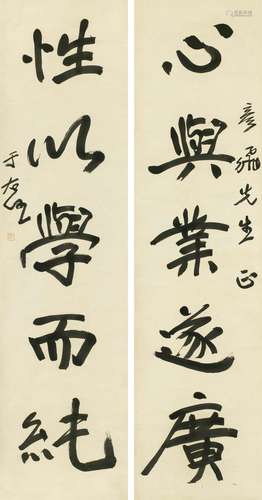 彥先生正
心與業遂廣
性以學而純
于右任